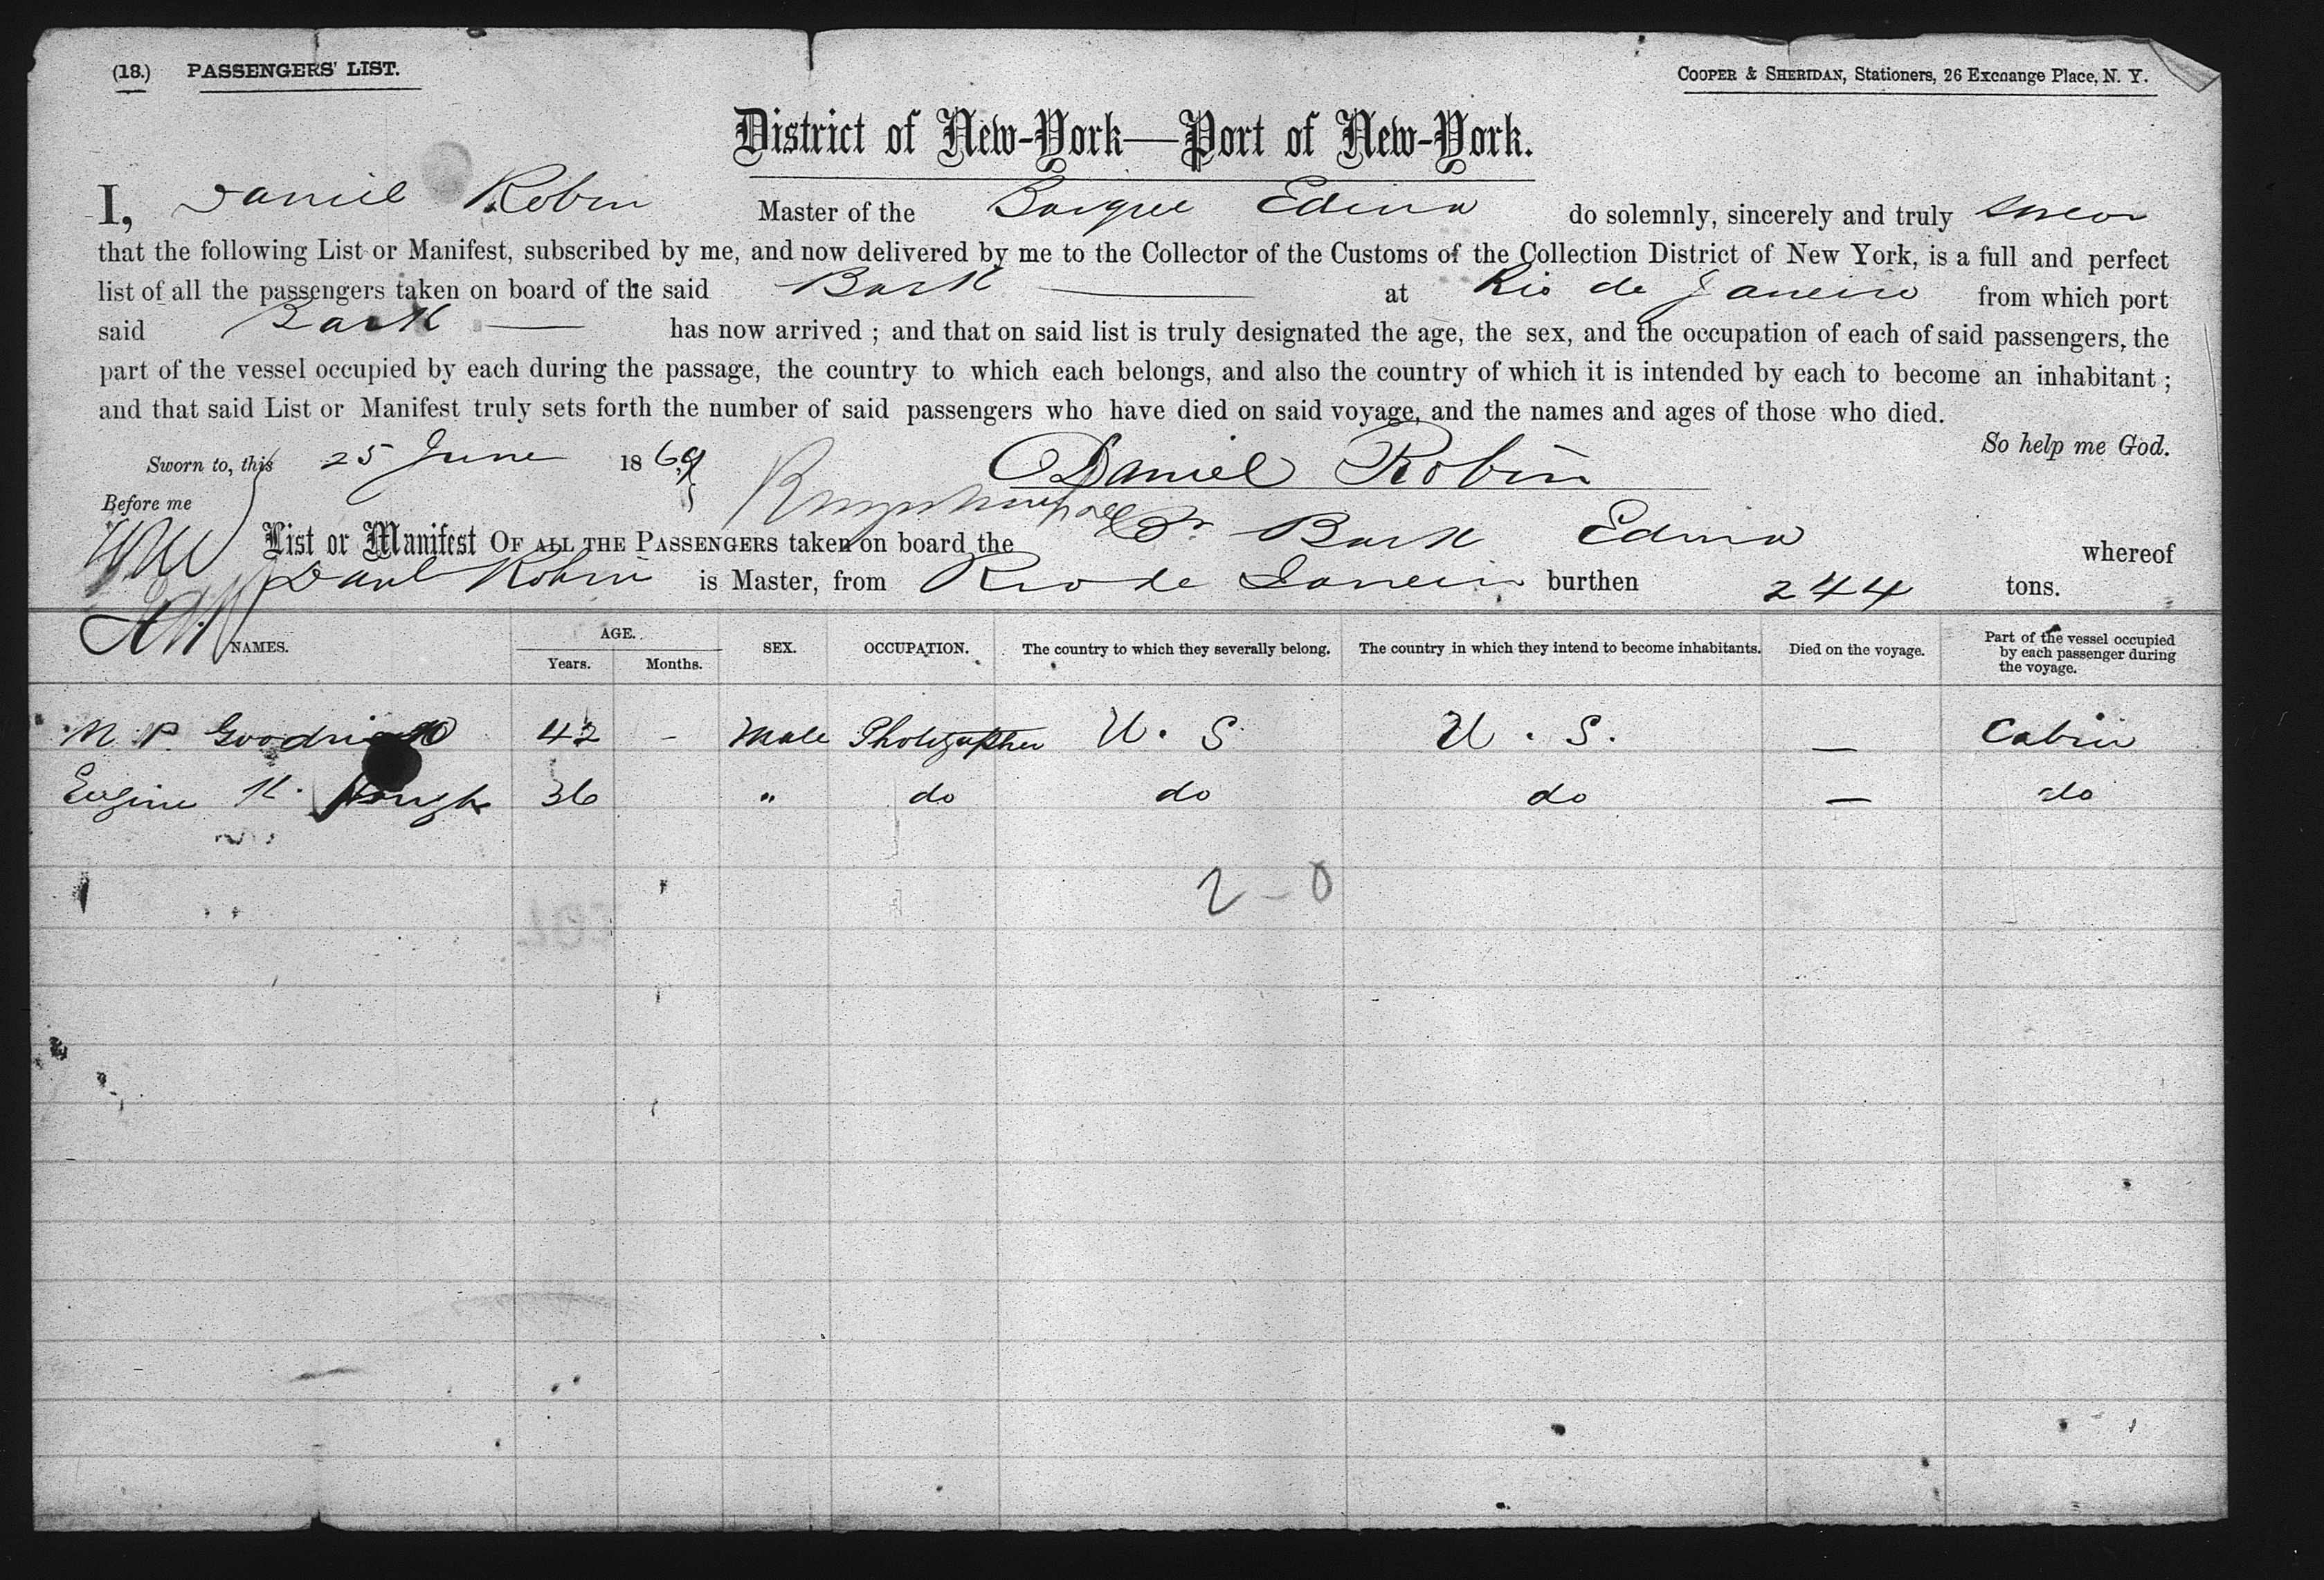 (18.) PASSENGERS' LIST.
COOPER & SHERIDAN, Stationers, 26 Exchange Place, N. Y.
District of New-York—Port of New-York.
I, Daniel Robin Master of the Barque Edina do solemnly, sincerely and truly swear
that the following List or Manifest, subscribed by me, and now delivered by me to the Collector of the Customs of the Collection District of New York, is a full and perfect
list of all the passengers taken on board of the said Bark at Rio de Janeiro from which port
said Bark has now arrived ; and that on said list is truly designated the age, the sex, and the occupation of each of said passengers, the
part of the vessel occupied by each during the passage, the country to which each belongs, and also the country of which it is intended by each to become an inhabitant ;
and that said List or Manifest truly sets forth the number of said passengers who have died on said voyage, and the names and ages of those who died.
So help me God.
Sworn to, this 25 June 1869 Daniel Robin
Before me
List or Manifest OF ALL THE PASSENGERS taken on board the Br Bark Edina whereof
Danl Robin is Master, from Rio de Janeiro burthen 244 tons.
NAMES. AGE. Years. Months. SEX. OCCUPATION. The country to which they severally belong. The country in which they intend to become inhabitants. Died on the voyage. Part of the vessel occupied by each passenger during the voyage.
N. P. 42 – Male Photographer U. S. U. S. — Cabin
Eugine H. 36 " do do do — do
2 – 0